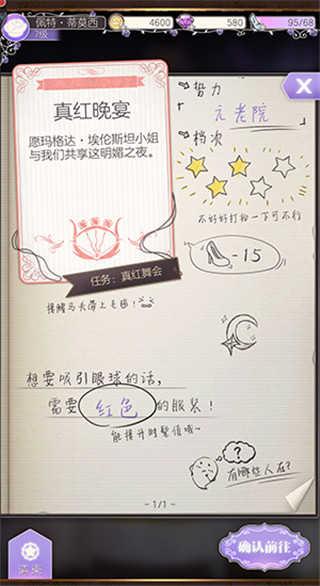 佩特·蒂莫西
7级
4600
580
95/68
真红晚宴
愿玛格达·埃伦斯坦小姐
与我们共享这明媚之夜。
任务：真红舞会
势力
「元老院」
档次
不好好打扮一下可不行
-15
想要吸引眼球的话，
需要 红色 的服装！
能提升时髦值哦~
?
有哪些人在？
-1/1-
确认前往